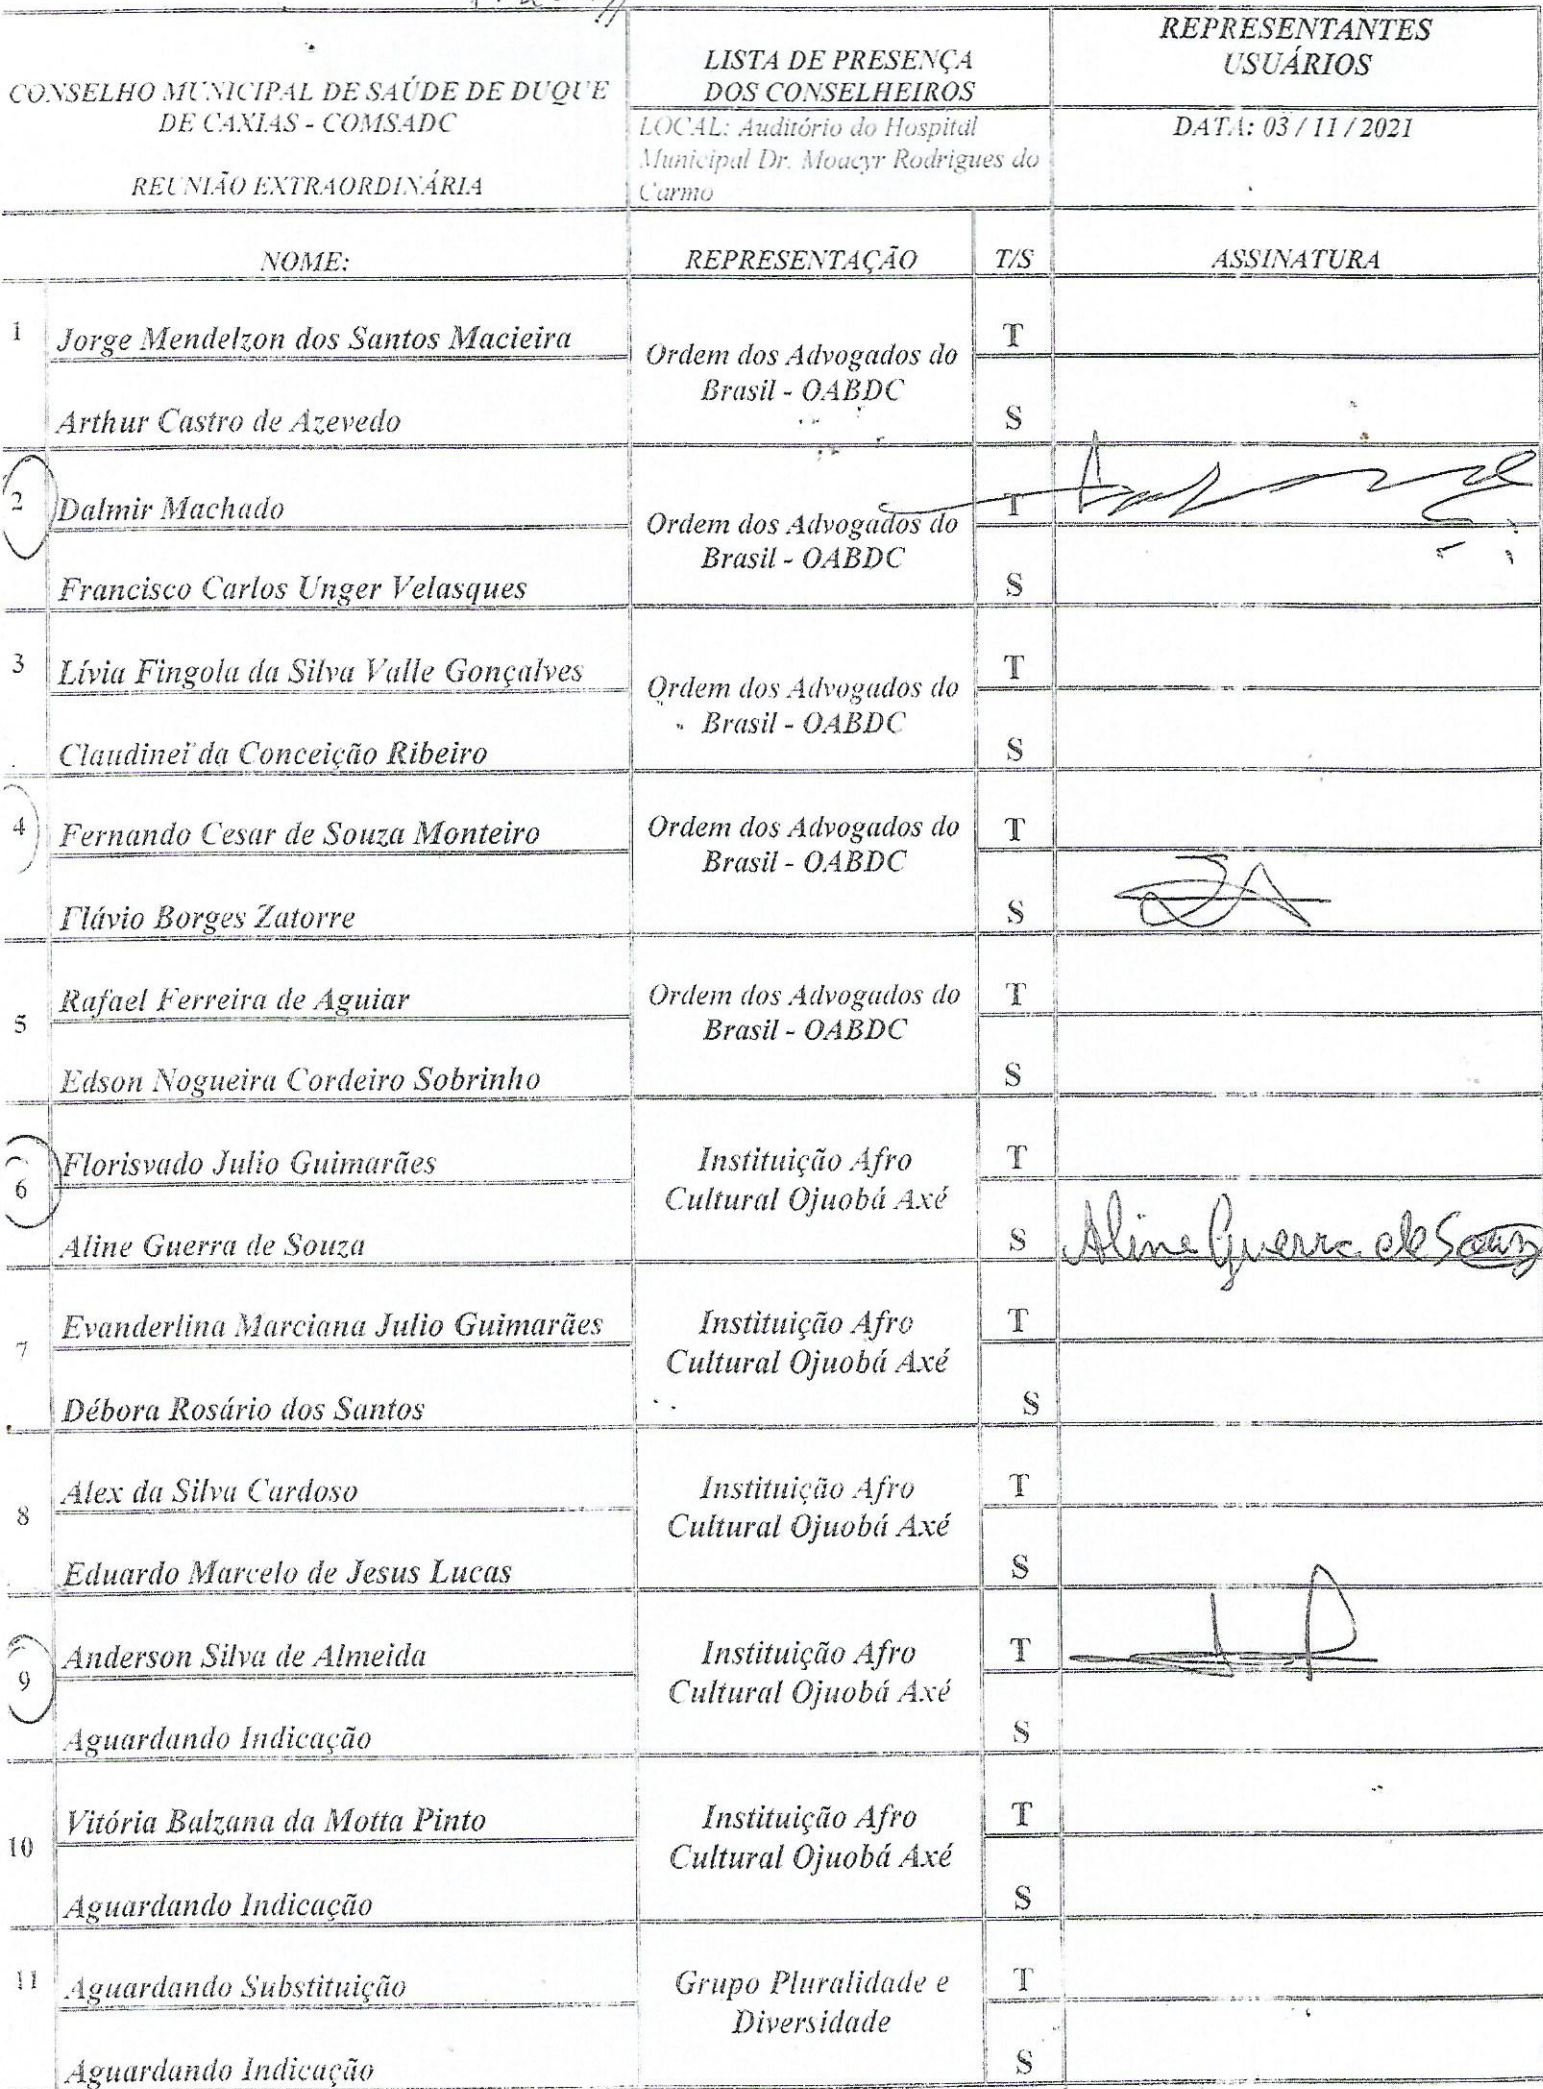 CONSELHO MUNICIPAL DE SAÚDE DE DUQUE
DE CAXIAS - COMSADC
REUNIÃO EXTRAORDINÁRIA
LISTA DE PRESENÇA
DOS CONSELHEIROS
LOCAL: Auditório do Hospital
Municipal Dr. Moacyr Rodrigues do
Carmo
REPRESENTANTES
USUÁRIOS
DATA: 03 / 11 / 2021
NOME: REPRESENTAÇÃO T/S ASSINATURA
1 Jorge Mendelzon dos Santos Macieira T
Ordem dos Advogados do
Brasil - OABDC
Arthur Castro de Azevedo S
2 Dalmir Machado T
Ordem dos Advogados do
Brasil - OABDC
Francisco Carlos Unger Velasques S
3 Lívia Fingola da Silva Valle Gonçalves T
Ordem dos Advogados do
Brasil - OABDC
Claudinei da Conceição Ribeiro S
4 Fernando Cesar de Souza Monteiro T
Ordem dos Advogados do
Brasil - OABDC
Flávio Borges Zatorre S
5 Rafael Ferreira de Aguiar T
Ordem dos Advogados do
Brasil - OABDC
Edson Nogueira Cordeiro Sobrinho S
6 Florisvado Julio Guimarães T
Instituição Afro
Cultural Ojuobá Axé
Aline Guerra de Souza S Aline Guerra de Souza
7 Evanderlina Marciana Julio Guimarães T
Instituição Afro
Cultural Ojuobá Axé
Débora Rosário dos Santos S
8 Alex da Silva Cardoso T
Instituição Afro
Cultural Ojuobá Axé
Eduardo Marcelo de Jesus Lucas S
9 Anderson Silva de Almeida T
Instituição Afro
Cultural Ojuobá Axé
Aguardando Indicação S
10 Vitória Balzana da Motta Pinto T
Instituição Afro
Cultural Ojuobá Axé
Aguardando Indicação S
11 Aguardando Substituição T
Grupo Pluralidade e
Diversidade
Aguardando Indicação S